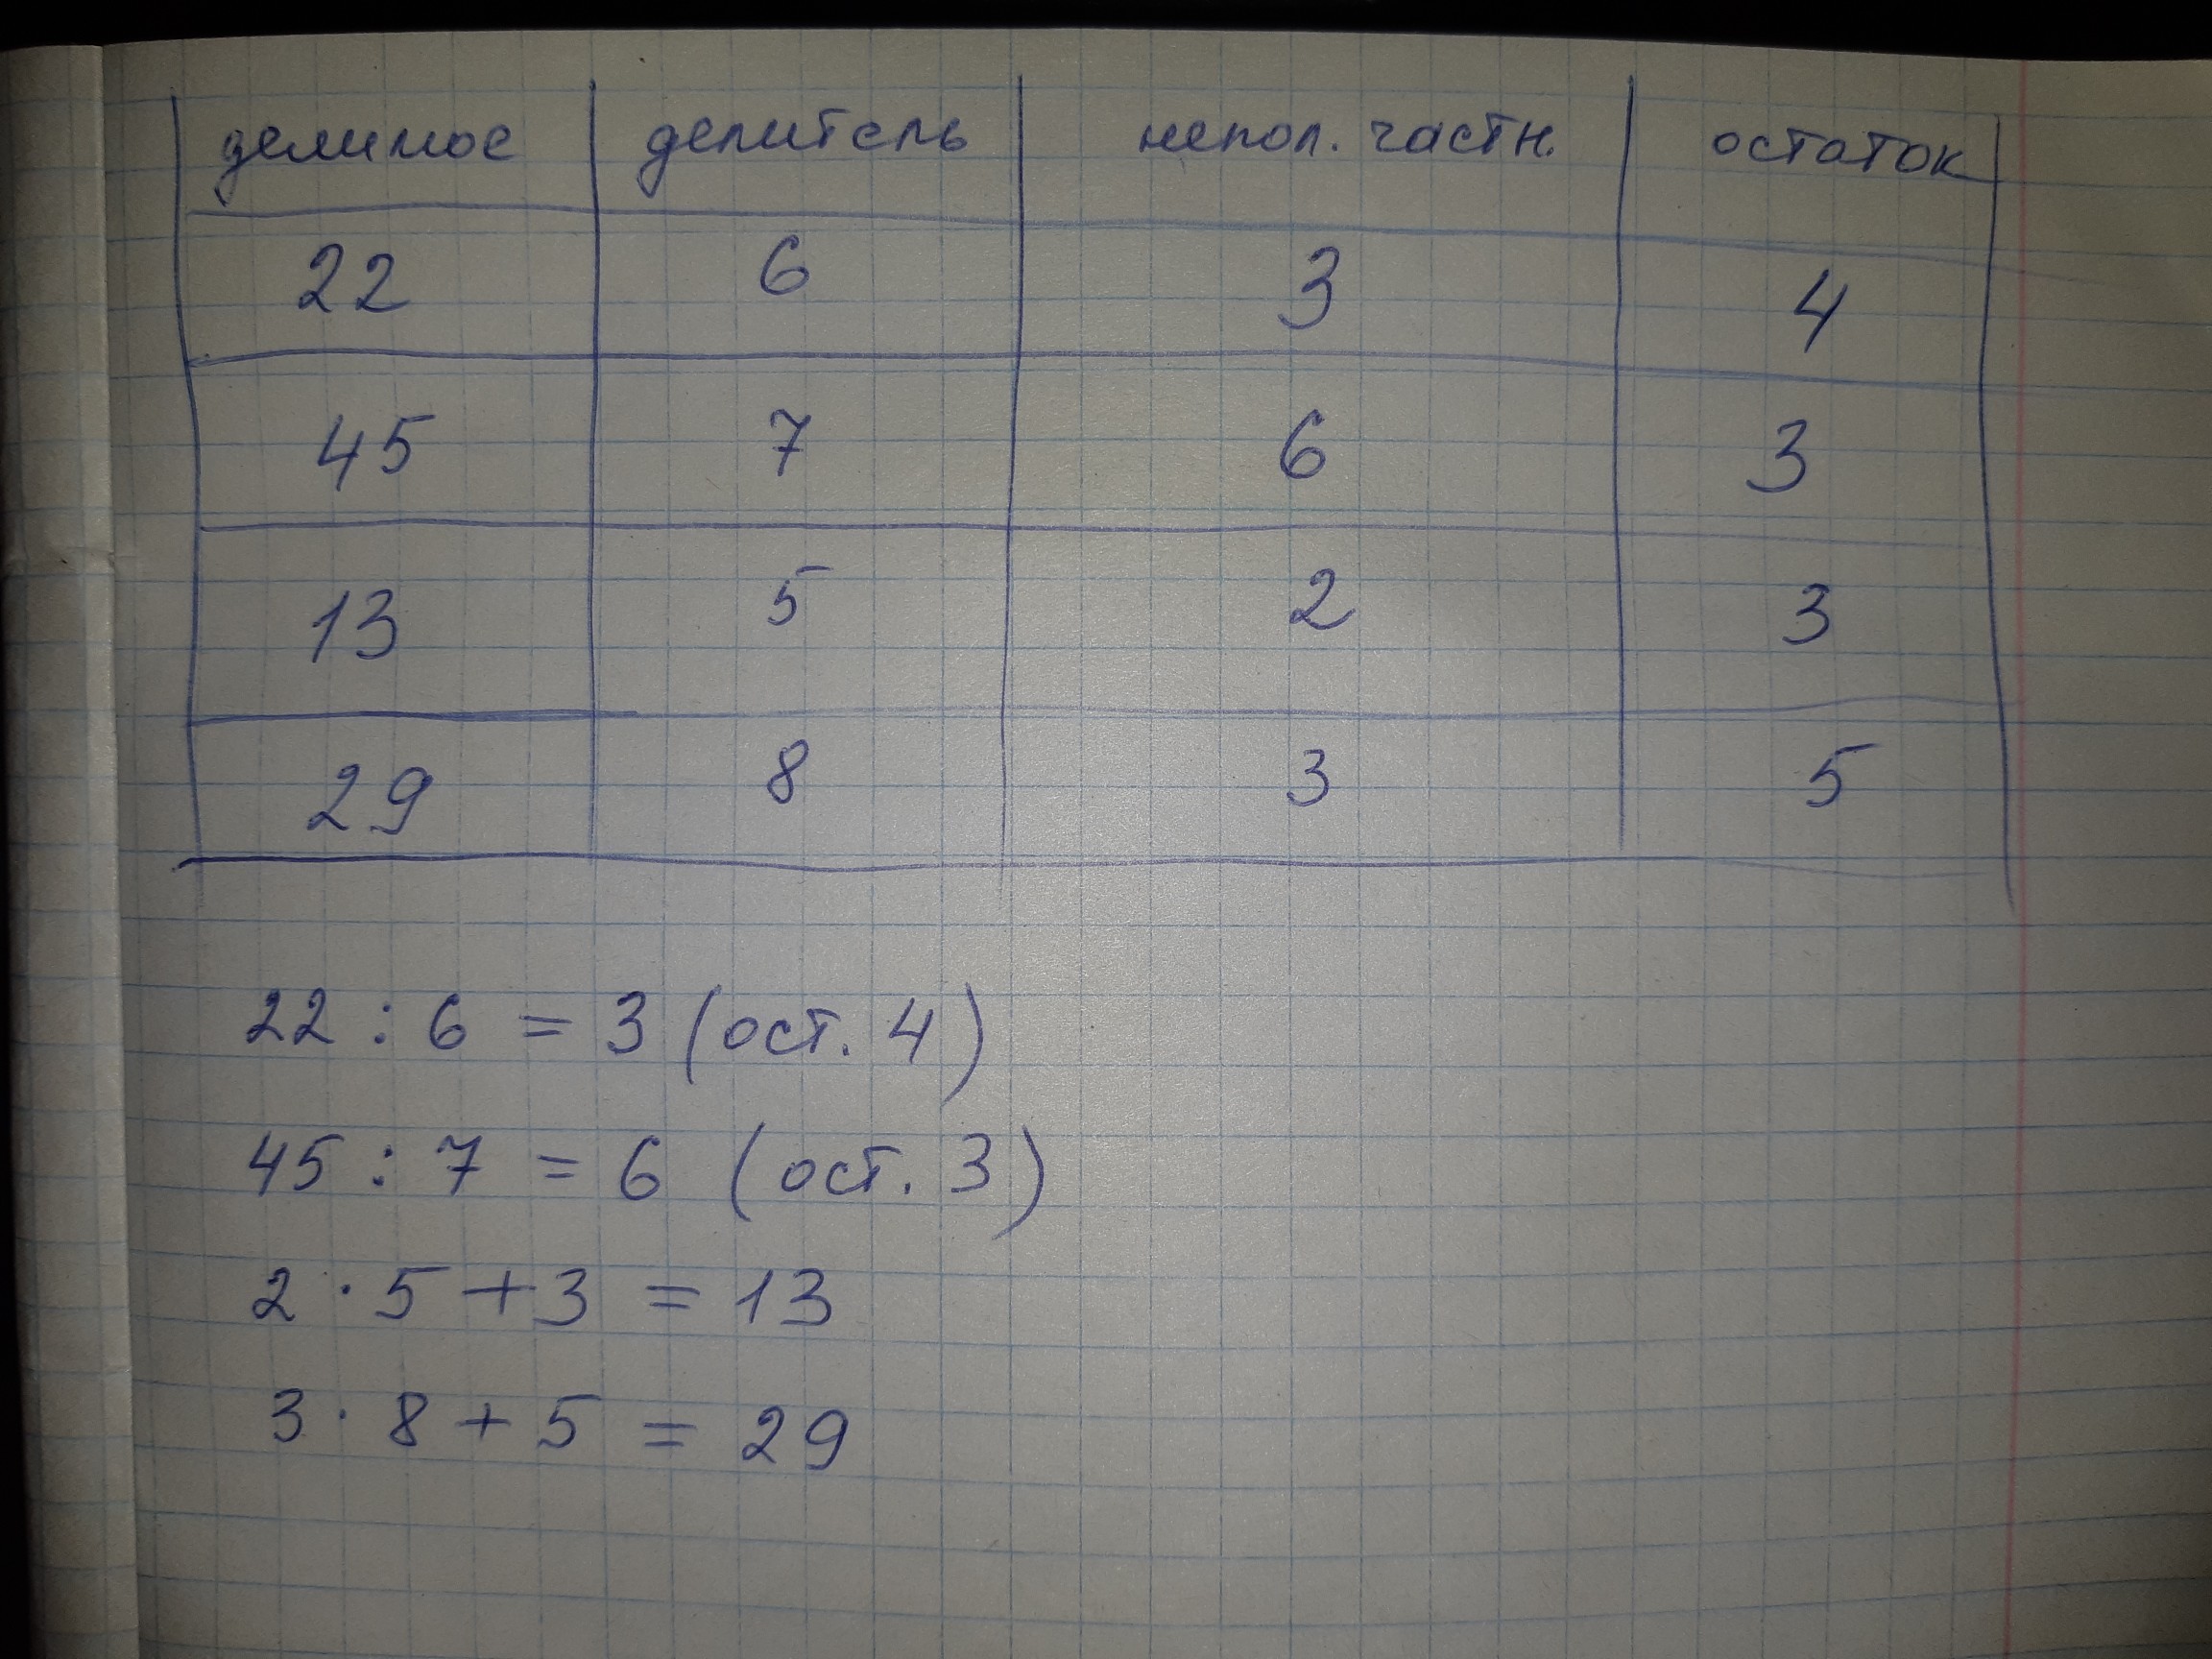 делимое делитель непол. частн. остаток
22 6 3 4
45 7 6 3
13 5 2 3
29 8 3 5
22 : 6 = 3 (ост. 4)
45 : 7 = 6 (ост. 3)
2 · 5 + 3 = 13
3 · 8 + 5 = 29